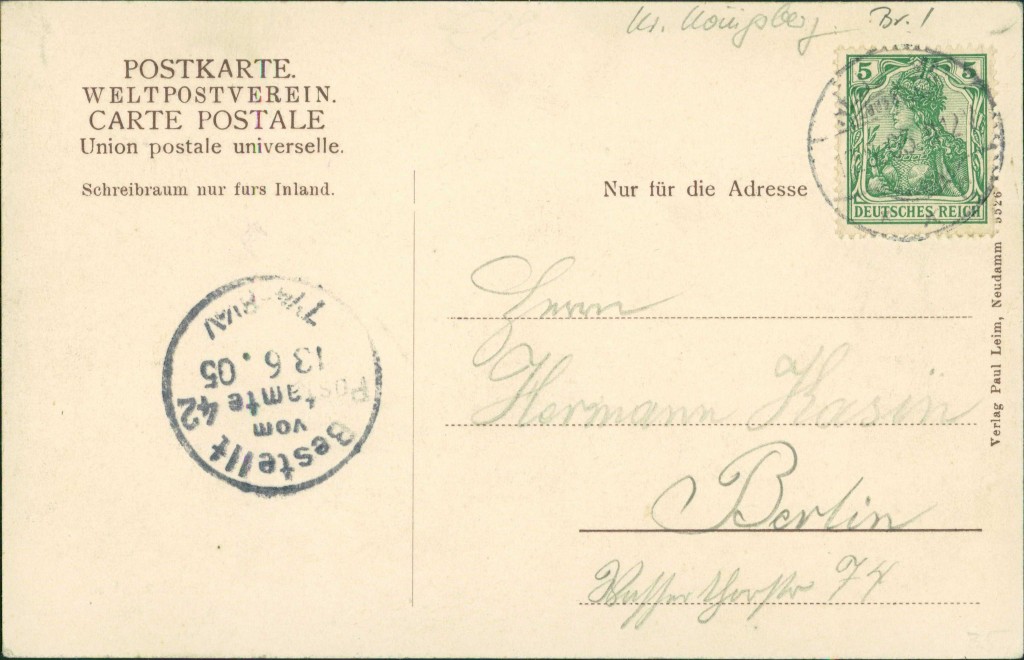 Kr. Königsberg Br. 1
POSTKARTE.
WELTPOSTVEREIN.
CARTE POSTALE
Union postale universelle.
Schreibraum nur furs Inland.
Nur für die Adresse
5 5
DEUTSCHES REICH
Verlag Paul Leim, Neudamm 5526
Herrn
Hermann Kasin
Berlin
Wasserthorstr 74
Bestellt
vom
Postamte 42
13 6. 05